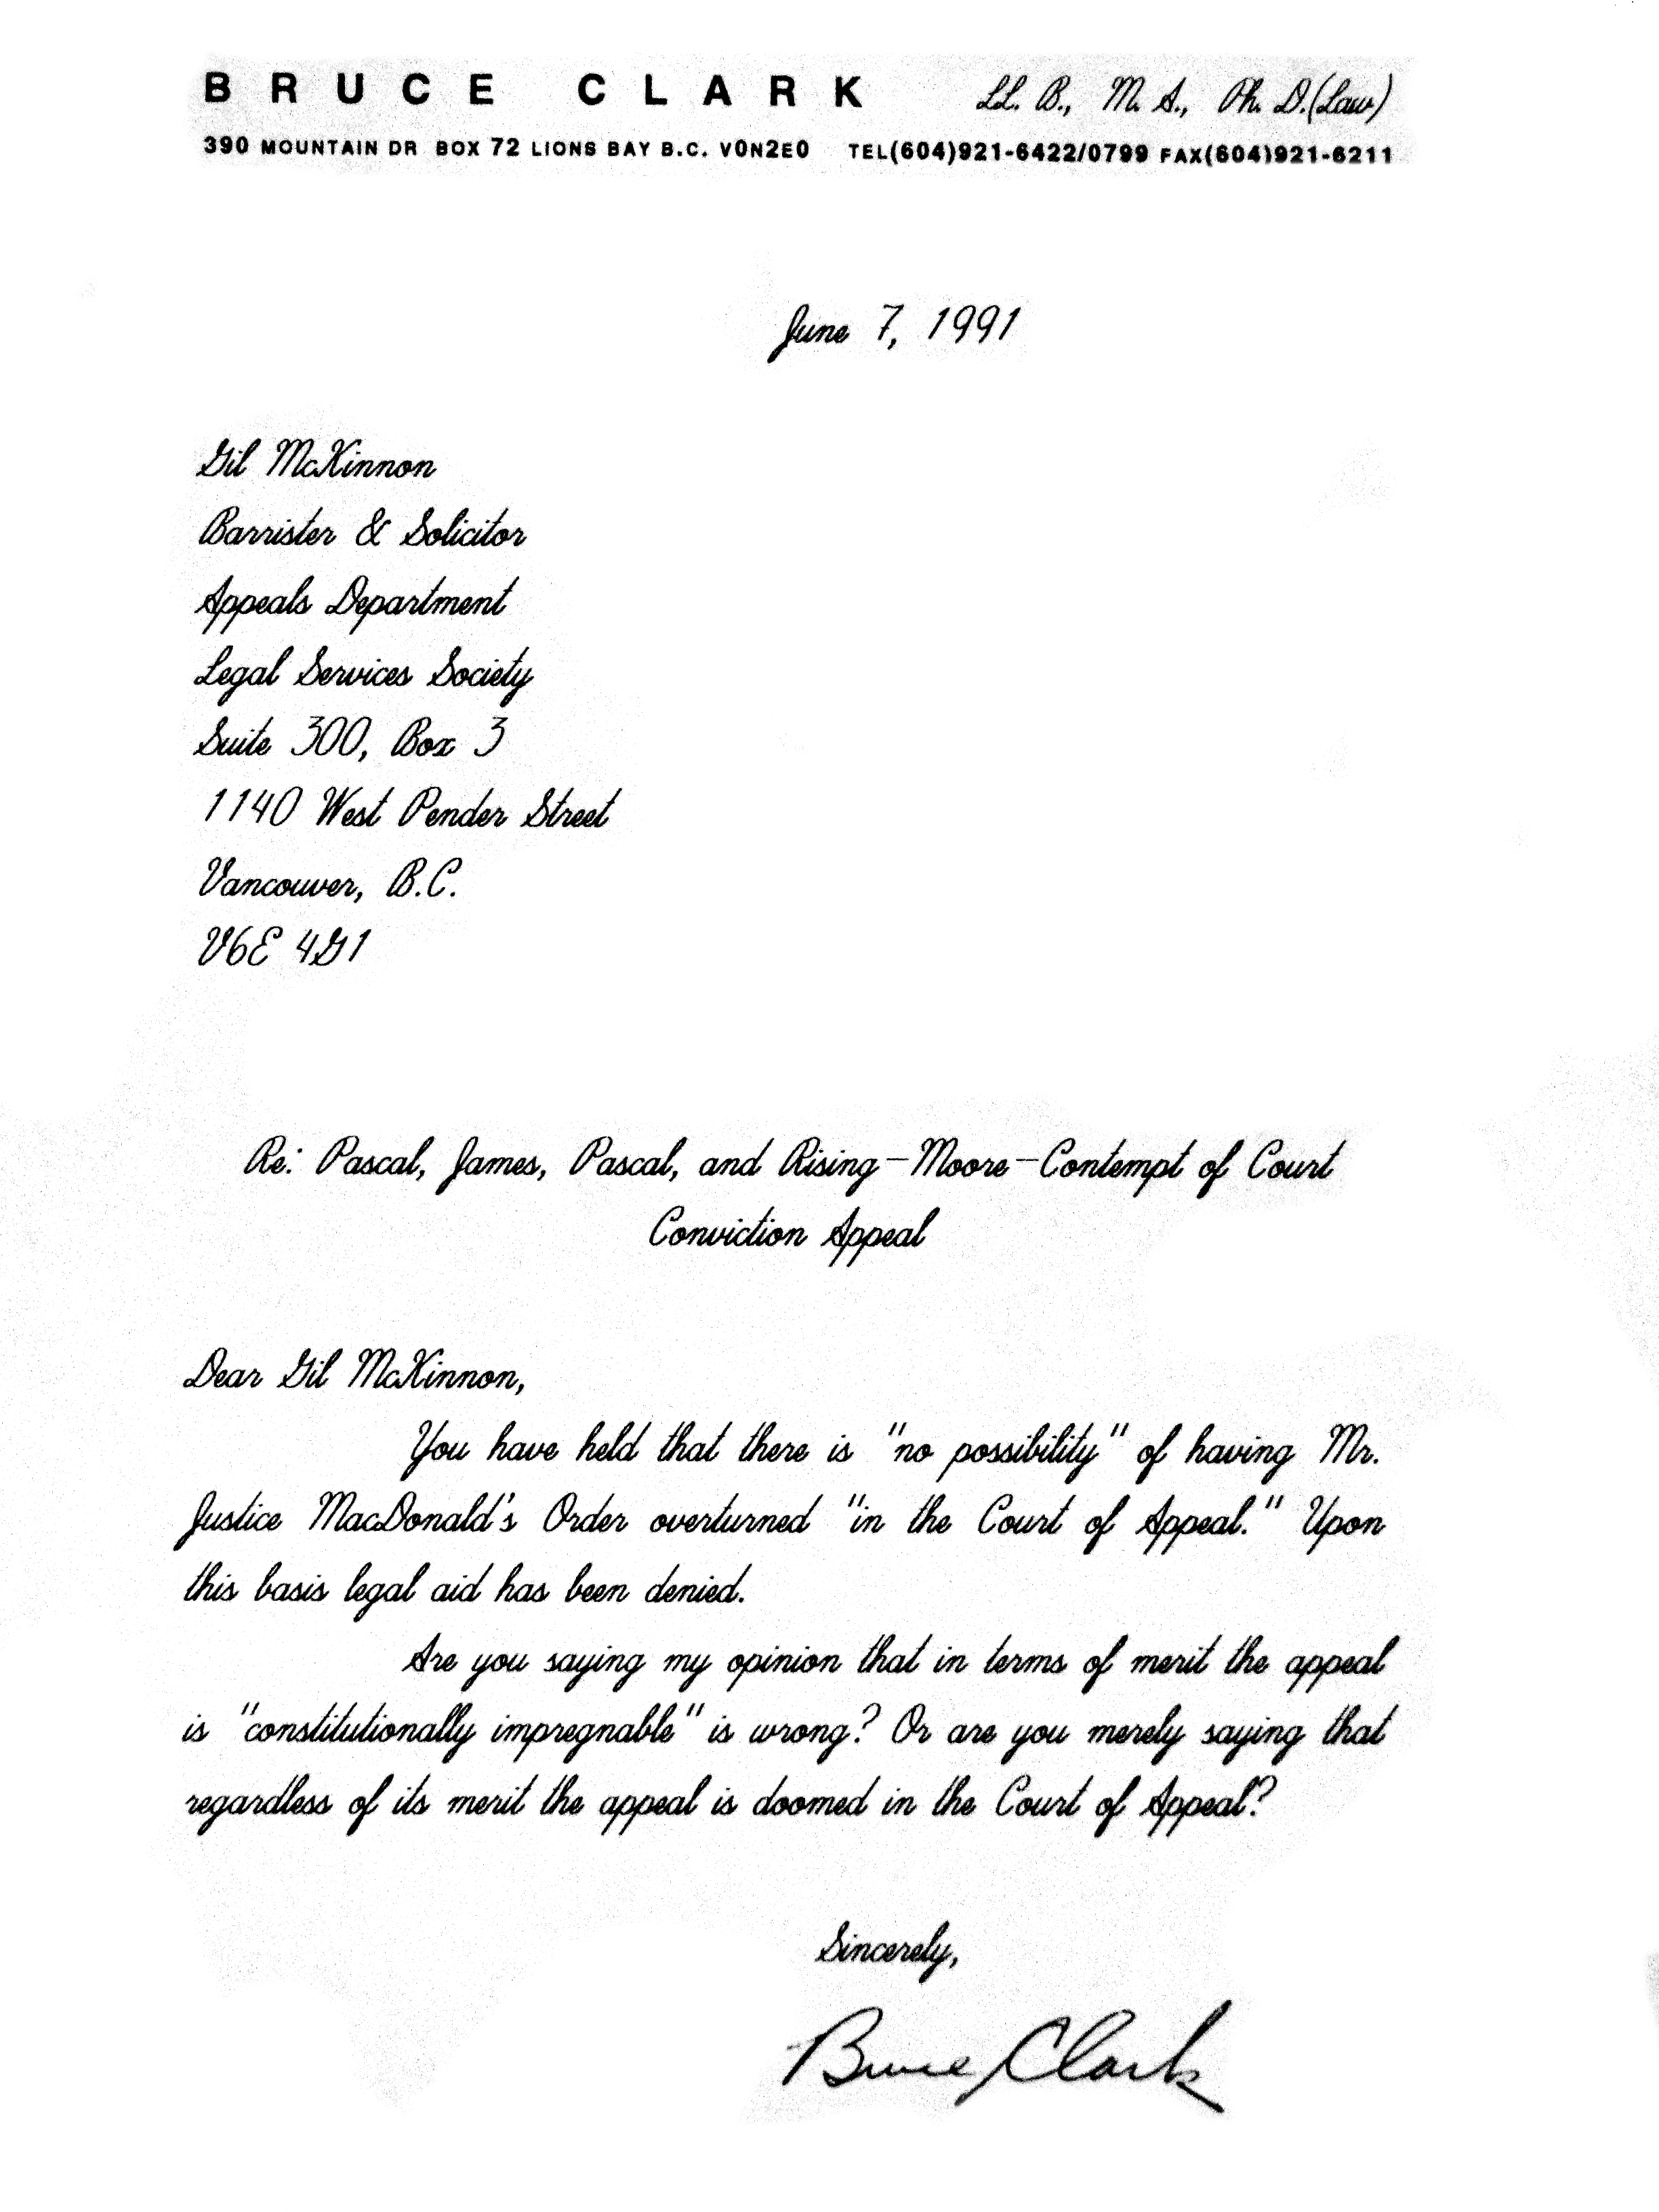 BRUCE CLARK LL. B., M. A., Ph. D. (Law)
390 MOUNTAIN DR BOX 72 LIONS BAY B.C. V0N2E0 TEL(604)921-6422/0799 FAX(604)921-6211
June 7, 1991
Gil McKinnon
Barrister & Solicitor
Appeals Department
Legal Services Society
Suite 300, Box 3
1140 West Pender Street
Vancouver, B.C.
V6E 4G1
Re: Pascal, James, Pascal, and Rising-Moore-Contempt of Court
Conviction Appeal
Dear Gil McKinnon,
You have held that there is "no possibility" of having Mr.
Justice MacDonald's Order overturned "in the Court of Appeal." Upon
this basis legal aid has been denied.
Are you saying my opinion that in terms of merit the appeal
is "constitutionally impregnable" is wrong? Or are you merely saying that
regardless of its merit the appeal is doomed in the Court of Appeal?
Sincerely,
Bruce Clark